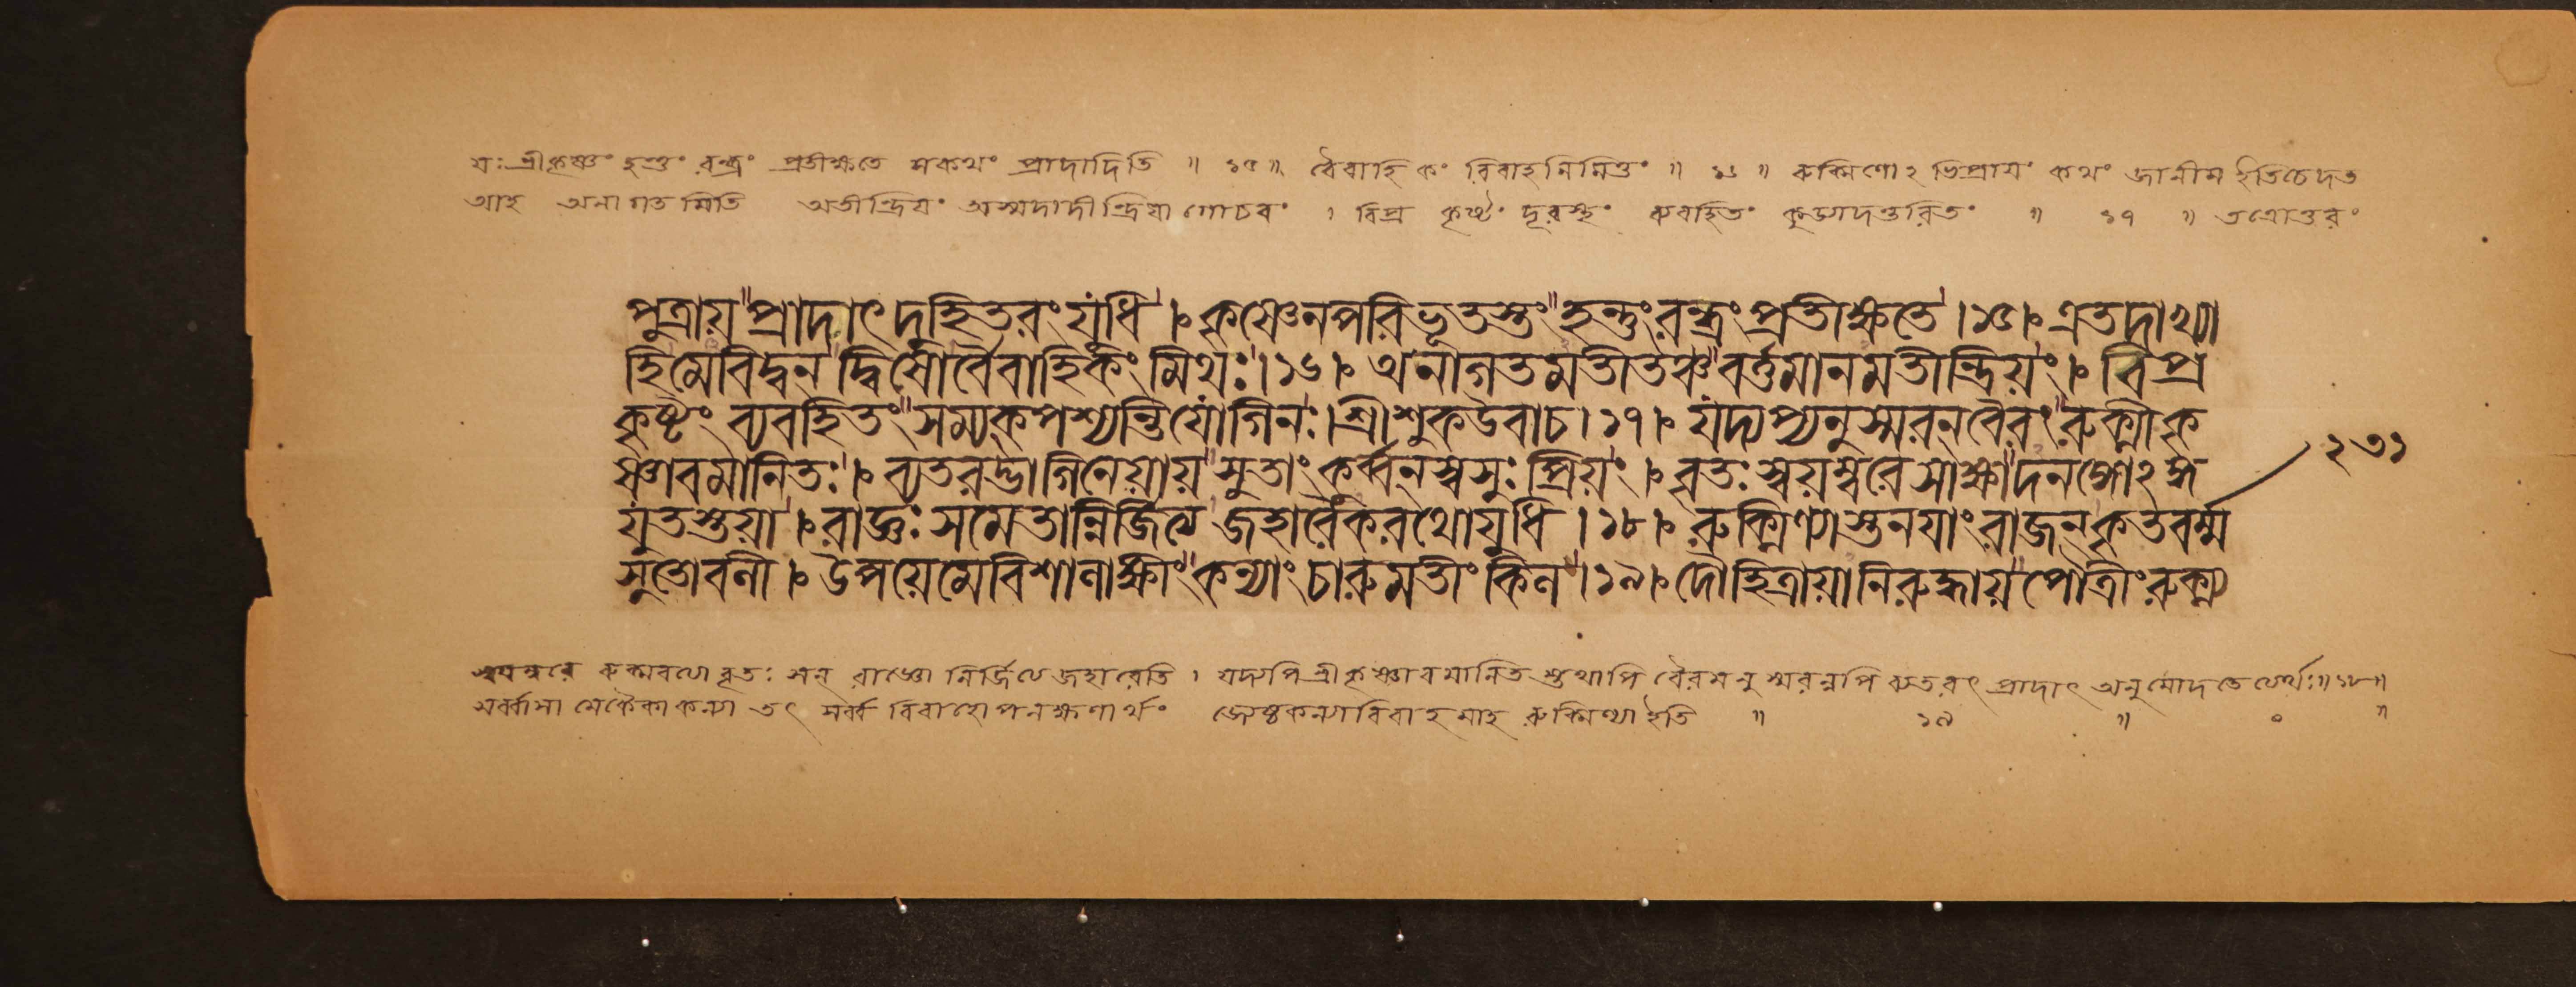 যঃ শ্রীকৃষ্ণং হন্তুং রন্ধ্রং প্রতীক্ষতে স কথং প্রাদাদিতি ॥ ১৫ ॥ বৈবাহিকং বিবাহনিমিত্তং ॥ ১৬ ॥ রুক্মিণোঽভিপ্রায়ং কথং জানীম ইতিচেদত
আহ অনাগতমিতি অতীন্দ্রিয়ং অস্মদাদীন্দ্রিয়াগোচরং । বিপ্রকৃষ্টং দূরস্থং ব্যবহিতং কুড্যাদ্যন্তরিতং ॥ ১৭ ॥ তত্রোত্তরং
পুত্রায় প্রাদাৎ দুহিতরং যুধি । কৃষ্ণেনপরিভূতস্তং হন্তুংরন্ধ্রংপ্রতীক্ষতে । ১৫ । এতদাখ্যা
হিমেবিদ্বন্ দ্বিষোর্বৈবাহিকং মিথঃ । ১৬ । অনাগতমতীতঞ্চ বর্ত্তমানমতীন্দ্রিয়ং । বিপ্র
কৃষ্টং ব্যবহিতং সম্যক্ পশ্যন্তিযোগিনঃ । শ্রীশুকউবাচ । ১৭ । যদ্যপ্যনুস্মরন্ বৈরং রুক্মীকৃ
ষ্ণাবমানিতঃ । ব্যতরদ্ভাগিনেয়ায় সুতাং কুর্ব্বন্ স্বসুঃ প্রিয়ং । বৃতঃ স্বয়ম্বরেসাক্ষাদনঙ্গোঽঙ্গ
যুতস্তয়া । রাজ্ঞঃ সমেতান্নির্জিত্য জহারৈকরথোযুধি । ১৮ । রুক্মিণ্যাস্তনয়াংরাজন্ কৃতবর্ম্ম
২৩১
সুতোবলী । উপয়েমেবিশালাক্ষীং কন্যাং চারুমতীং কিল । ১৯ । দৌহিত্রায়ানিরুদ্ধায় পৌত্রীংরুক্ম্য
স্বয়ম্বরে রুক্মবত্যা বৃতঃ সন্ রাজ্ঞো নির্জিত্য জহারেতি । যদ্যপি শ্রীকৃষ্ণাবমানিতস্তথাপি বৈরমনুস্মরন্নপি ব্যতরৎ প্রাদাৎ অনুমোদতেত্যর্থঃ ॥ ১৮ ॥
সর্ব্বাসামেকৈকাকন্যা তৎ সর্ব্ববিবাহোপলক্ষণার্থং জ্যেষ্ঠকন্যাবিবাহমাহ রুক্মিণ্যাইতি ॥ ১৯ ॥ ० ॥